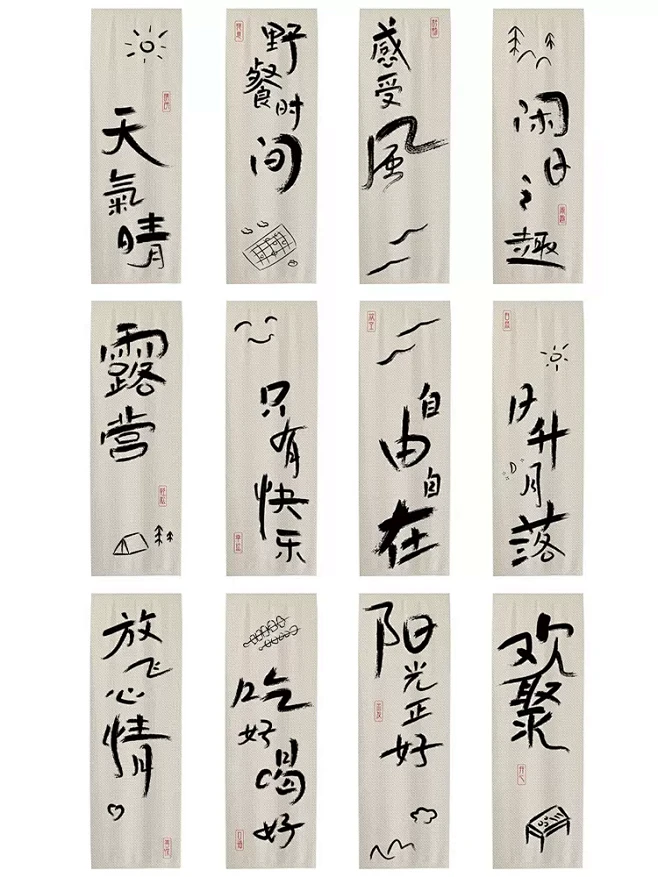 天氣晴
野餐时间
感受風
闲日之趣
露营
只有快乐
自由自在
日升月落
放飞心情
吃好喝好
阳光正好
欢聚